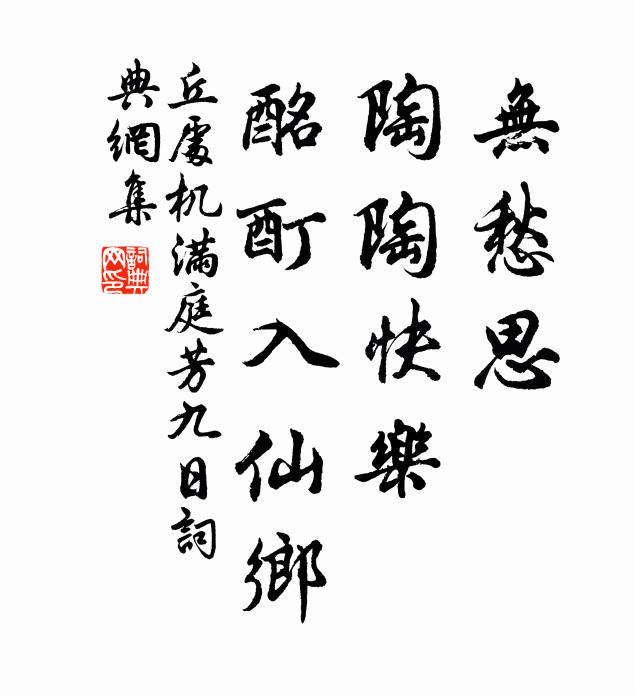 無愁思
陶陶快樂
酩酊入仙鄉
丘處机滿庭芳九日詞
典網集
詞典网印